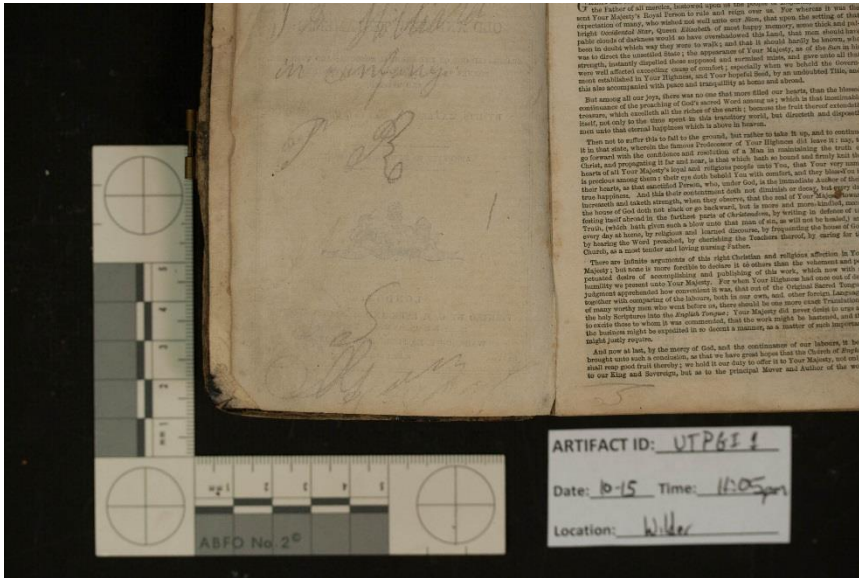 in
the Father of all mercies, bestowed upon us the people of
sent Your Majesty's Royal Person to rule and reign over us. For whereas it was the
expectation of many, who wished not well unto our Sion, that upon the setting of that
bright Occidental Star, Queen Elizabeth of most happy memory, some thick and pal-
pable clouds of darkness would so have overshadowed this Land, that men should have
been in doubt which way they were to walk; and that it should hardly be known, who
was to direct the unsettled State; the appearance of Your Majesty, as of the Sun in his
strength, instantly dispelled those supposed and surmised mists, and gave unto all that
were well affected exceeding cause of comfort; especially when we beheld the Govern-
ment established in Your Highness, and Your hopeful Seed, by an undoubted Title, and
this also accompanied with peace and tranquillity at home and abroad.
But among all our joys, there was no one that more filled our hearts, than the blessed
continuance of the preaching of God's sacred Word among us; which is that inestimable
treasure, which excelleth all the riches of the earth; because the fruit thereof extendeth
itself, not only to the time spent in this transitory world, but directeth and disposeth
men unto that eternal happiness which is above in heaven.
Then not to suffer this to fall to the ground, but rather to take it up, and to continue
it in that state, wherein the famous Predecessor of Your Highness did leave it; nay, t
go forward with the confidence and resolution of a Man in maintaining the truth o
Christ, and propagating it far and near, is that which hath so bound and firmly knit th
hearts of all Your Majesty's loyal and religious people unto You, that Your very nam
is precious among them; their eye doth behold You with comfort, and they bless You i
their hearts, as that sanctified Person, who, under God, is the immediate Author of the
true happiness. And this their contentment doth not diminish or decay, but every da
increaseth and taketh strength, when they observe, that the zeal of Your Majesty towar
the house of God doth not slack or go backward, but is more and more kindled, man
festing itself abroad in the farthest parts of Christendom, by writing in defence of t
Truth, (which hath given such a blow unto that man of sin, as will not be healed,) a
every day at home, by religious and learned discourse, by frequenting the house of Go
by hearing the Word preached, by cherishing the Teachers thereof, by caring for t
Church, as a most tender and loving nursing Father.
There are infinite arguments of this right Christian and religious affection in Yo
Majesty; but none is more forcible to declare it to others than the vehement and pe
petuated desire of accomplishing and publishing of this work, which now with a
humility we present unto Your Majesty. For when Your Highness had once out of de
judgment apprehended how convenient it was, that out of the Original Sacred Tongu
together with comparing of the labours, both in our own, and other foreign Languag
of many worthy men who went before us, there should be one more exact Translation
the holy Scriptures into the English Tongue; Your Majesty did never desist to urge a
to excite those to whom it was commended, that the work might be hastened, and th
the business might be expedited in so decent a manner, as a matter of such importan
might justly require.
And now at last, by the mercy of God, and the continuance of our labours, it be
brought unto such a conclusion, as that we have great hopes that the Church of Engla
shall reap good fruit thereby; we hold it our duty to offer it to Your Majesty, not onl
to our King and Sovereign, but as to the principal Mover and Author of the wo
5
ABFO No. 2©
ARTIFACT ID: UTPGI 1
Date: 10-15 Time: 11:05pm
Location: Wilder